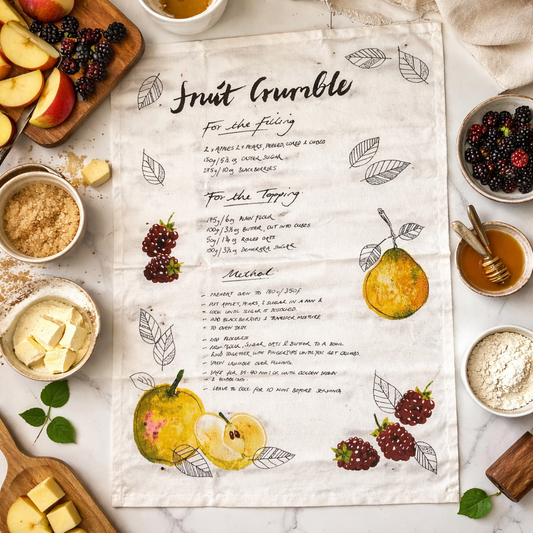 Fruit Crumble
For the Filling
2 x APPLES 2 x PEARS, PEELED, CORED & CUBED
150g/5¼ oz CASTER SUGAR
285g/10oz BLACKBERRIES
For the Topping
175g/6oz PLAIN FLOUR
100g/3½oz BUTTER, CUT INTO CUBES
50g/1¾oz ROLLED OATS
100g/3½oz DEMERARA SUGAR
Method
- PREHEAT OVEN TO 180c/350f
- PUT APPLES, PEARS, & SUGAR IN A PAN &
- COOK UNTIL SUGAR IS DISSOLVED
- ADD BLACKBERRIES & TRANSFER MIXTURE
- TO OVEN DISH
- FLOUR, SUGAR, OATS & BUTTER TO A BOWL
RUB TOGETHER WITH FINGERTIPS UNTIL YOU GET CRUMBS.
- CRUMBLE OVER FILLING
- BAKE FOR 35-40 MINS OR UNTIL GOLDEN BROWN
- & BUBBLING
- LEAVE TO COOL FOR 10 MINS BEFORE SERVING